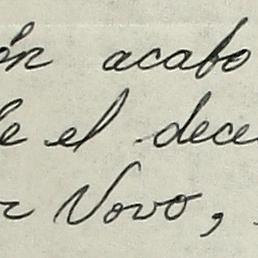 ón acabo
le el dece
r Novo,